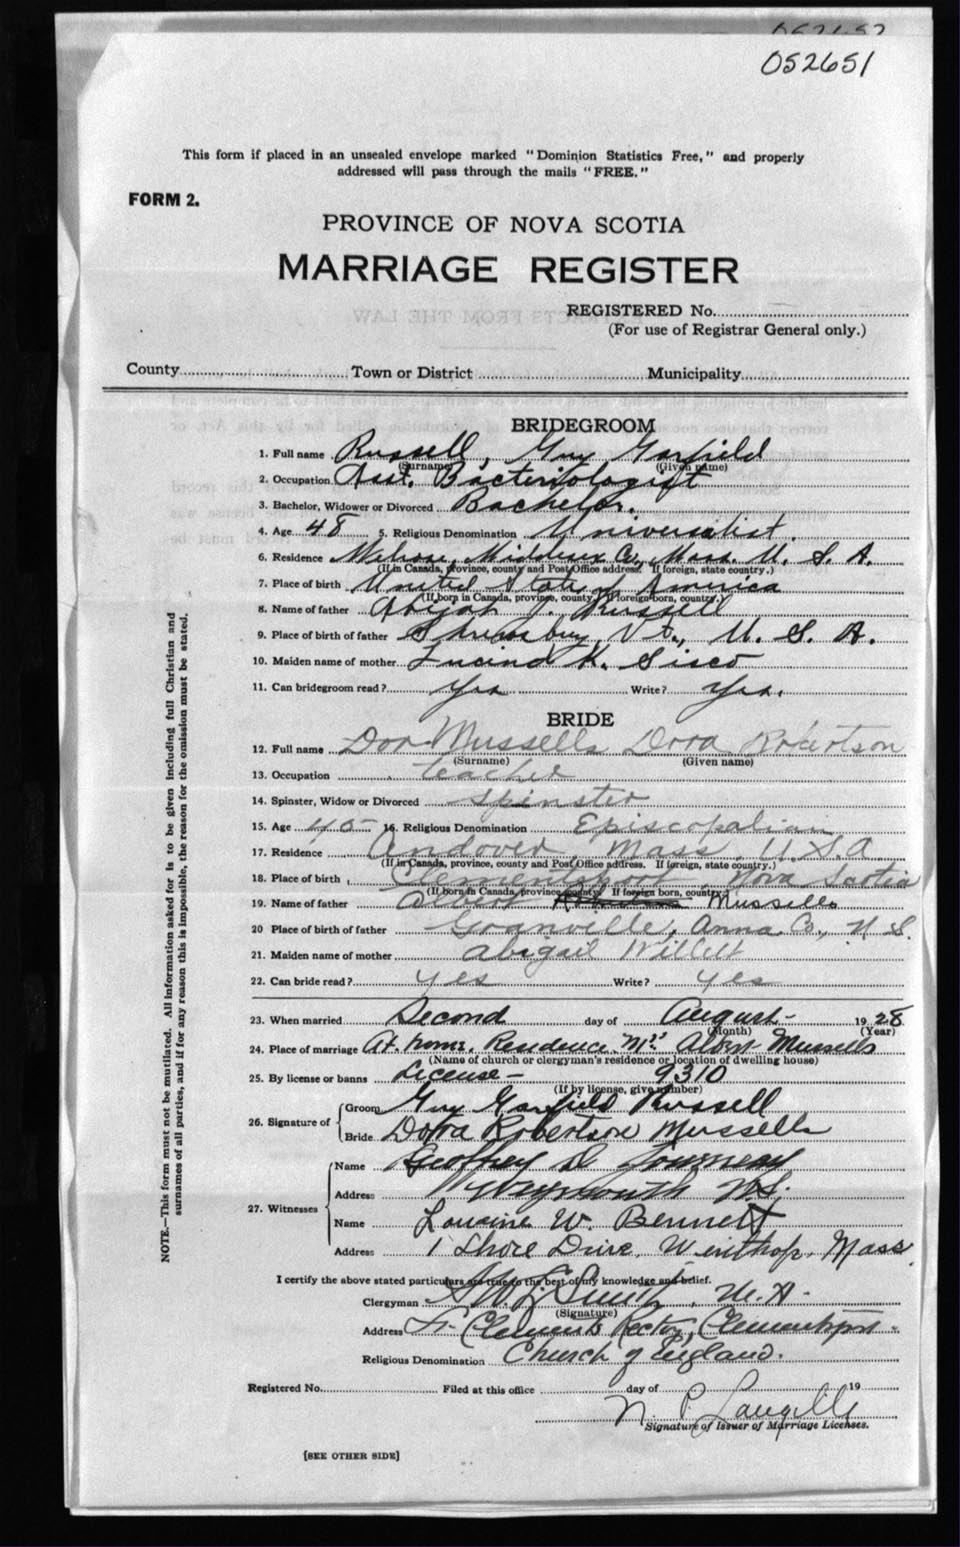 052651
This form if placed in an unsealed envelope marked "Dominion Statistics Free," and properly
addressed will pass through the mails "FREE."
FORM 2.
PROVINCE OF NOVA SCOTIA
MARRIAGE REGISTER
REGISTERED No.
(For use of Registrar General only.)
County Town or District Municipality
BRIDEGROOM
1. Full name Russell, Guy Garfield
(Surname) (Given name)
2. Occupation Asst. Bacteriologist
3. Bachelor, Widower or Divorced Bachelor.
4. Age 48 5. Religious Denomination Universalist.
6. Residence Melrose, Middlesex Co., Mass. U. S. A.
(If in Canada, province, county and Post Office address. If foreign, state country.)
7. Place of birth United States of America
(If born in Canada, province, county. If foreign born, country.)
8. Name of father Abijah J. Russell
9. Place of birth of father Shrewsbury, Vt., U. S. A.
10. Maiden name of mother Lucina K. Sisco
11. Can bridegroom read? Yes Write? Yes.
BRIDE
12. Full name Mussells Dora Robertson
(Surname) (Given name)
13. Occupation teacher
14. Spinster, Widow or Divorced Spinster
15. Age 45 16. Religious Denomination Episcopalian
17. Residence Andover, Mass, U.S.A
(If in Canada, province, county and Post Office address. If foreign, state country.)
18. Place of birth Clementsport, Nova Scotia
(If born in Canada, province, county. If foreign born, country.)
19. Name of father Albert Mussells
20 Place of birth of father Granville, Anna. Co., N. S.
21. Maiden name of mother Abigail Willett
22. Can bride read? yes Write? yes
23. When married Second day of August 1928
(Month) (Year)
24. Place of marriage At home, Residence Mrs. Albert Mussells
(Name of church or clergyman's residence or location of dwelling house)
25. By license or banns License - 9310
(If by license, give number)
26. Signature of Groom Guy Garfield Russell
Bride Dora Robertson Mussells
27. Witnesses Name Geoffrey D
Address Weymouth N.S.
Name Lorraine W. Bennett
Address 1 Shore Drive, Winthrop, Mass.
I certify the above stated particulars are true to the best of my knowledge and belief.
Clergyman Smith, M.A.
(Signature)
Address St. Clements Rectory, Clementsport.
Religious Denomination Church of England.
Registered No. Filed at this office day of 19
N. P. Langille
Signature of Issuer of Marriage Licenses.
[SEE OTHER SIDE]
NOTE.—This form must not be mutilated. All information asked for is to be given including full Christian and
surnames of all parties, and if for any reason this is impossible, the reason for the omission must be stated.